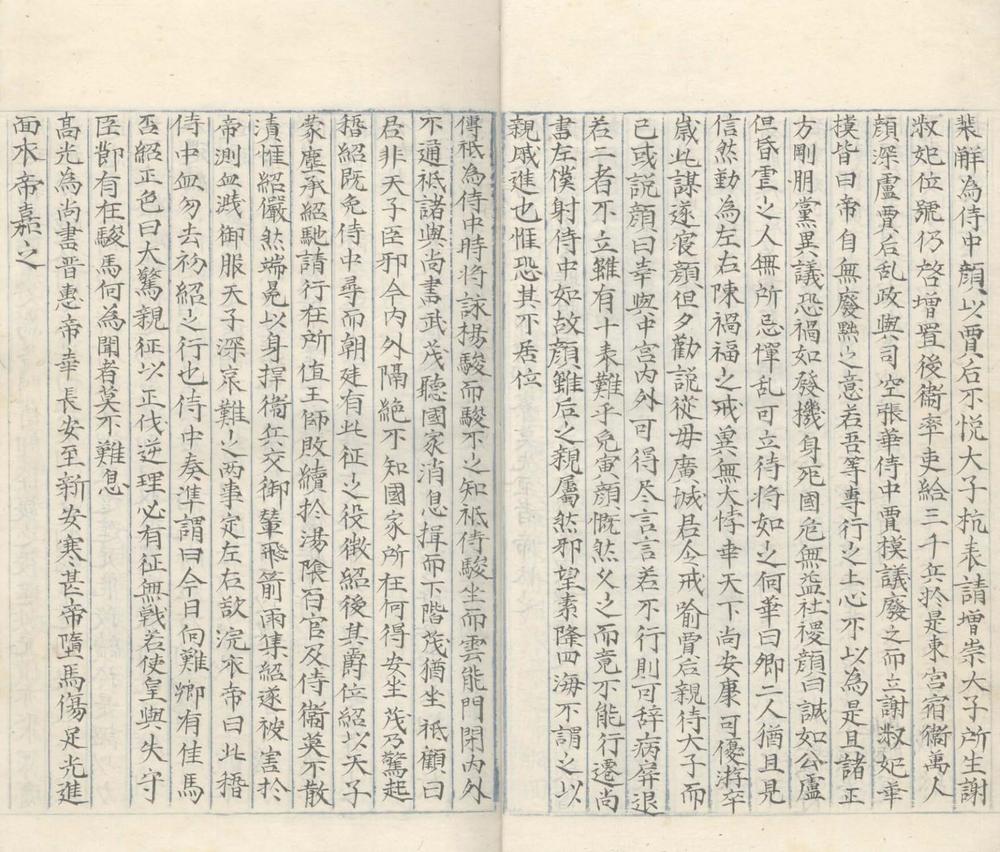 裴解為侍中顔以賈后不悦大子杭表請增崇大子所生謝
淑妃位號仍啓增置後衞率吏給三千兵於是東宮宿衞萬人
顔深盧賈后乱政與司空張華侍中賈模議廢之而立謝淑妃華
摸皆曰帝自無廢黜之意若吾等專行之上心不以為是且諸王
方剛朋黨異議恐禍如發機身死國危無益社稷顔曰誠如公盧
但昏虐之人無所忌憚乱可立待将如之何華曰卿二人猶且見
信然勤為左右陳禍福之戒冀無大悖幸天下尚安庶可優游卒
歳此謀遂寝顔但夕勸説從毋廣城君令戒喻賈后親待大子而
已或説顔曰幸與中宮内外可得尽言言若不行則可辞病屏退
若二者不立雖有十表難乎免矣顔慨然久之而竟不能行遷尚
書左僕射侍中如故顔雖后之親屬然邪望素隆四海不謂之以
親戚進也惟恐其不居位
傳祗為侍中時将誅楊駿而駿不之知祗侍駿坐而雲能門閉内外
不通祗諸與尚書武茂聽國家消息揖而下階茂猶坐祗顧曰
君非天子臣邪今内外隔絶不知國家所在何得安坐茂乃驚起
嵇紹既免侍中尋而朝廷有北征之役徴紹後其爵位紹以天子
蒙塵承紹馳請行在所值王師敗績於湯隂百官及侍衞莫不散
潰惟紹儼然端冕以身捍衞兵交御輦飛箭雨集紹遂被害於
帝測血濺御服天子深哀難之两事定左右欲浣衣帝曰此嵇
侍中血勿去初紹之行也侍中奏準謂曰今日向難卿有佳馬
否紹正色曰大驚親征以正伐逆理必有征無戦若使皇與失守
臣節有在駿馬何為聞者莫不難息
高光為尚書晋惠帝幸長安至新安寒甚帝墮馬傷足光進
面衣帝嘉之